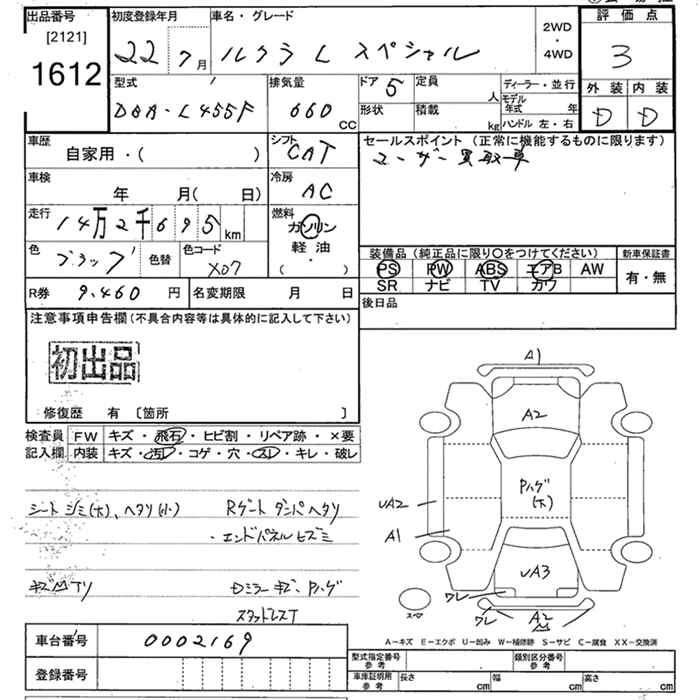 出品番号 初度登録年月 車名・グレード 2WD 評価点
[2121] 22 7月 ルクラ L スペシャル ・4WD 3
1612
型式 排気量 ドア 5 定員 人 ディーラー・並行 外装 内装
DBA-L455F 660 CC 形状 積載 kg モデル年式 年 D D
ハンドル 左・右
車歴 シフト セールスポイント (正常に機能するものに限ります)
自家用・( ) CAT ユーザー買取車
車検 冷房
年 月( 日) AC
走行 14万2千695km 燃料
ガソリン
色 ブラック 色替 色コード X07 軽油・
( )
装備品(純正品に限り〇をつけてください) 新車保証書
PS PW ABS エアB AW 有・無
SR ナビ TV カワ
R券 9,460 円 名変期限 月 日 後日品
注意事項申告欄(不具合内容等は具体的に記入して下さい)
初出品
修復歴 有 〔箇所 〕
検査員 FW キズ・飛石・ヒビ割・リペア跡・×要
記入欄 内装 キズ・汚レ・コゲ・穴・スレ・キレ・破レ
A1
A2
Pハゲ
(大)
UA2
A1
UA3
ワレ
ワレ A2
スペア
シートシミ(大)、ヘタリ(小) Rゲートダンパヘタリ
・エンドパネルヒズミ
Dミラーキズ、Pハゲ
スタッドレスT
A-キズ E-エクボ U-凹み W-補修跡 S-サビ C-腐食 XX-交換済
車台番号 0002169
登録番号
型式指定番号 参考 類別区分番号 参考
車庫証明用 参考 長さ cm 幅 cm 高さ cm